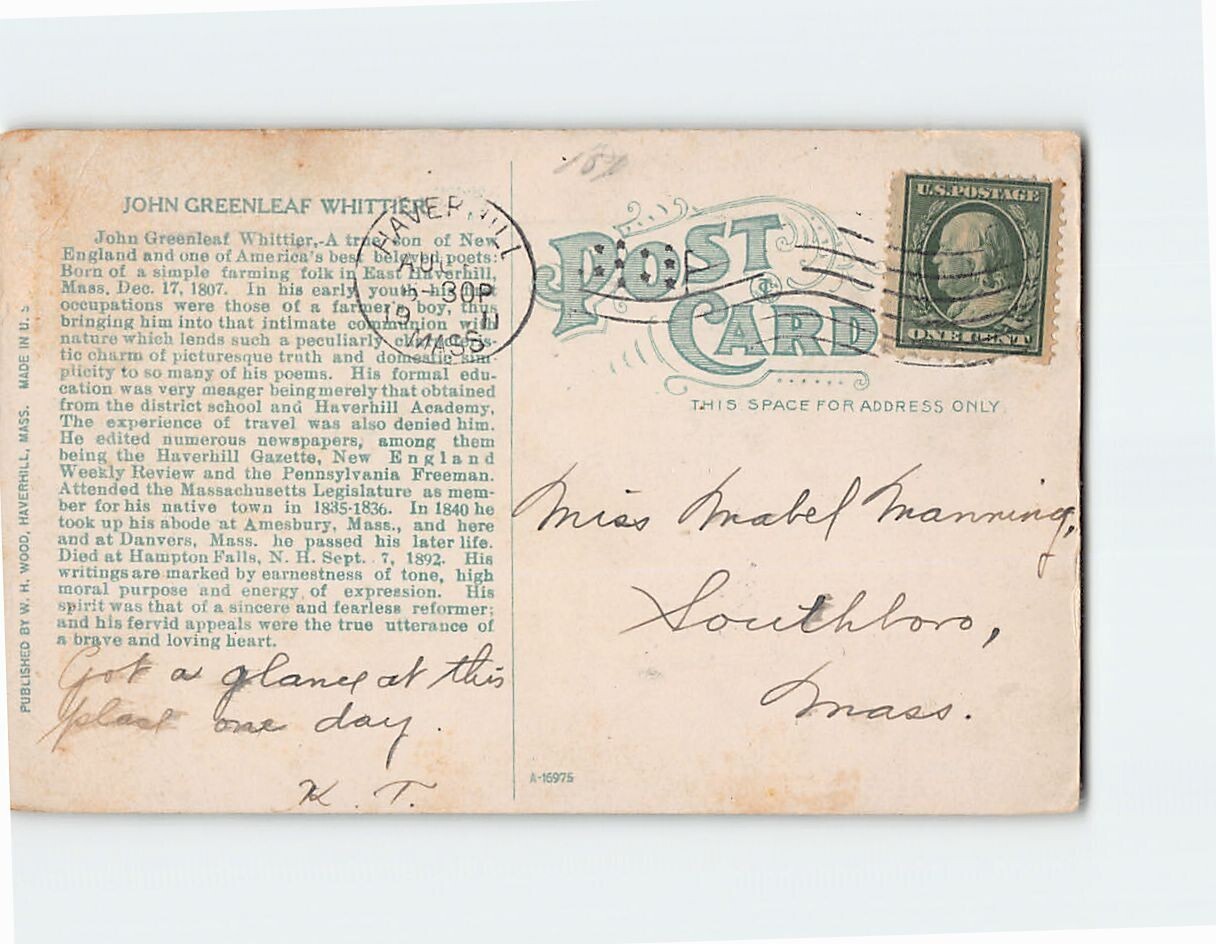 JOHN GREENLEAF WHITTIER
John Greenleaf Whittier,-A true son of New
England and one of America's best beloved poets:
Born of a simple farming folk in East Haverhill,
Mass. Dec. 17, 1807. In his early youth his
occupations were those of a farmer's boy, thus
bringing him into that intimate communion with
nature which lends such a peculiarly characteris-
tic charm of picturesque truth and domestic sim-
plicity to so many of his poems. His formal edu-
cation was very meager being merely that obtained
from the district school and Haverhill Academy.
The experience of travel was also denied him.
He edited numerous newspapers, among them
being the Haverhill Gazette, New England
Weekly Review and the Pennsylvania Freeman.
Attended the Massachusetts Legislature as mem-
ber for his native town in 1835-1836. In 1840 he
took up his abode at Amesbury, Mass., and here
and at Danvers, Mass. he passed his later life.
Died at Hampton Falls, N. H. Sept. 7, 1892. His
writings are marked by earnestness of tone, high
moral purpose and energy of expression. His
spirit was that of a sincere and fearless reformer;
and his fervid appeals were the true utterance of
a brave and loving heart.
Got a glance at this
place one day.
K. T.
PUBLISHED BY W. H. WOOD, HAVERHILL, MASS. MADE IN U. S
HAVERHILL
AU
30P
19 11
MASS
POST
CARD
U.S. POSTAGE
ONE CENT
THIS SPACE FOR ADDRESS ONLY
Miss Mabel Manning,
Southboro,
Mass.
A-16975